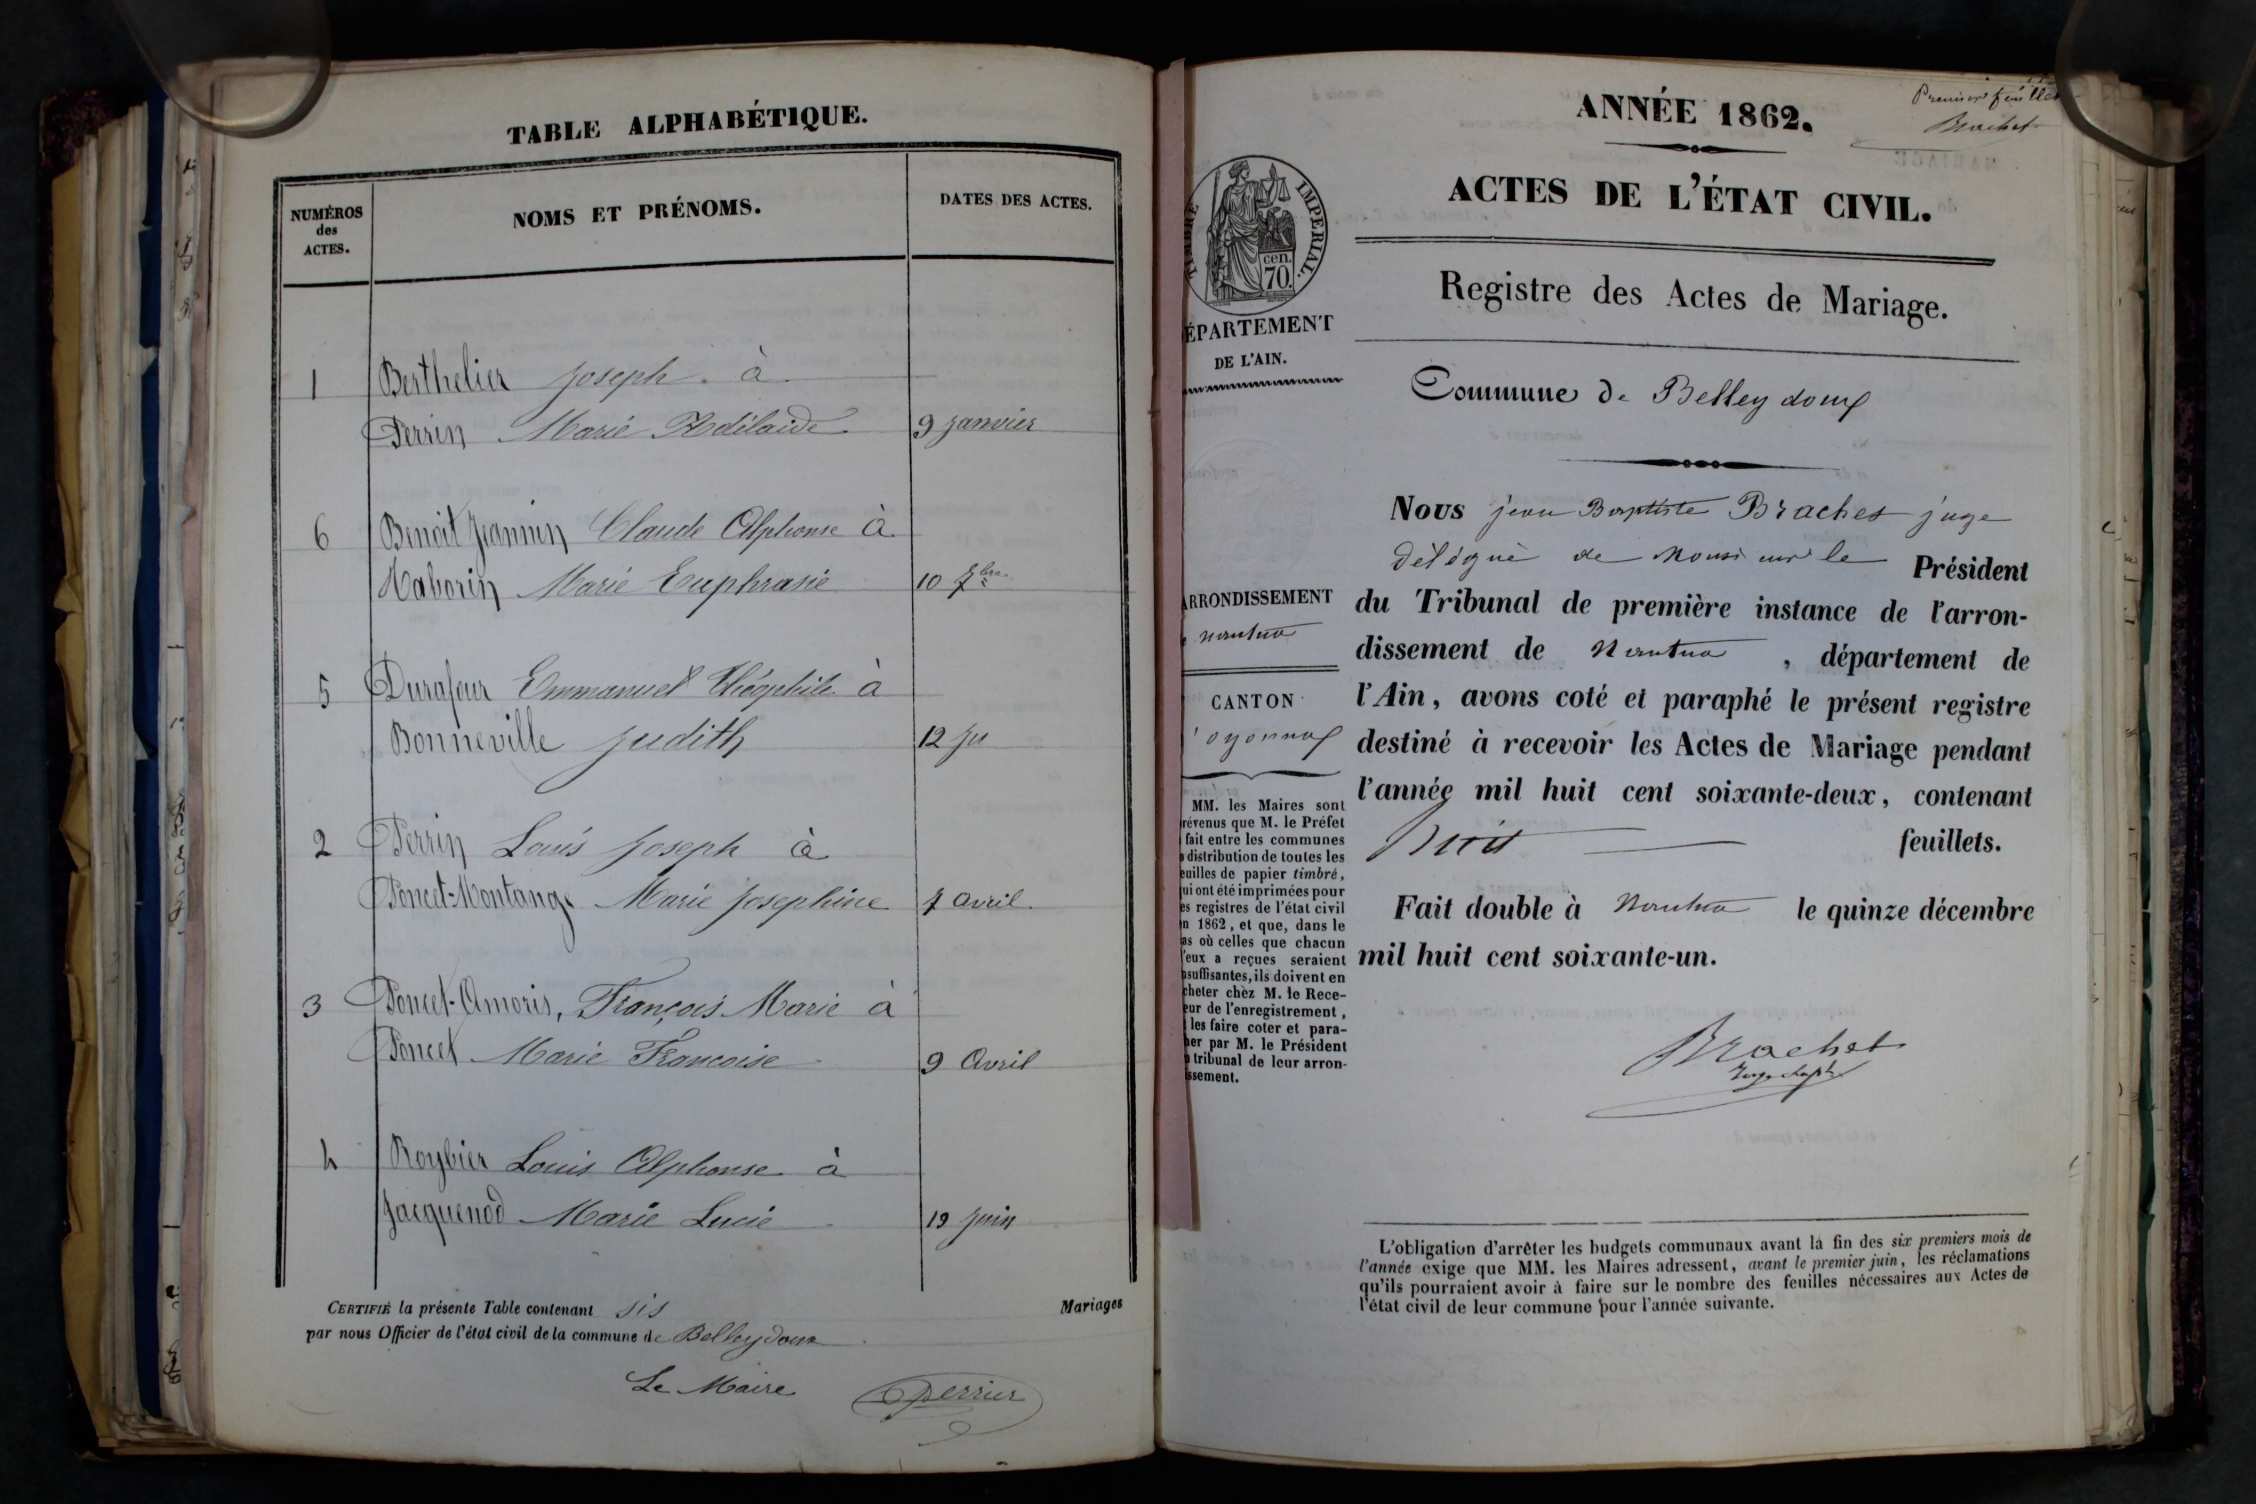 TABLE ALPHABÉTIQUE.
NUMÉROS
des
ACTES.
NOMS ET PRÉNOMS.
DATES DES ACTES.
1 Berthelier Joseph à
Perrin Marie Adélaide 9 janvier
6 Benoit Jeannin Claude Alphonse à
Marie Euphrasie 10 7bre
5 Durafour Emmanuel Théophile à
Bonneville Judith 12 Ju
2 Perrin Louis Joseph à
Poncet-Montange Marie Josephine 7 avril
3 Poncet-Amoris, François Marie à
Poncet Marie Francoise 9 Avril
4 Roybier Louis Alphonse à
Jacquenod Marie Lucie 19 Juin
CERTIFIÉ la présente Table contenant sis Mariages
par nous Officier de l'état civil de la commune de Belleydoux
Le Maire Perrier
Premier feuillet
Brachet
ANNÉE 1862.
ACTES DE L'ÉTAT CIVIL.
Registre des Actes de Mariage.
TIMBRE IMPERIAL.
cen.
70.
ÉPARTEMENT
DE L'AIN.
Commune de Belleydoux
Nous jean Baptiste Brachet juge
délégué de Monsieur le Président
du Tribunal de première instance de l'arron-
dissement de Nantua, département de
l'Ain, avons coté et paraphé le présent registre
destiné à recevoir les Actes de Mariage pendant
l'année mil huit cent soixante-deux, contenant
huit feuillets.
Fait double à Nantua le quinze décembre
mil huit cent soixante-un.
Brachet
ARRONDISSEMENT
nantua
CANTON
oyonnax
MM. les Maires sont
révenus que M. le Préfet
fait entre les communes
distribution de toutes les
euilles de papier timbré,
ui ont été imprimées pour
es registres de l'état civil
n 1862, et que, dans le
as où celles que chacun
'eux a reçues seraient
nsuffisantes, ils doivent en
cheter chèz M. le Rece-
eur de l'enregistrement,
les faire coter et para-
her par M. le Président
tribunal de leur arron-
issement.
L'obligation d'arrêter les budgets communaux avant la fin des six premiers mois de
l'année exige que MM. les Maires adressent, avant le premier juin, les réclamations
qu'ils pourraient avoir à faire sur le nombre des feuilles nécessaires aux Actes de
l'état civil de leur commune pour l'année suivante.